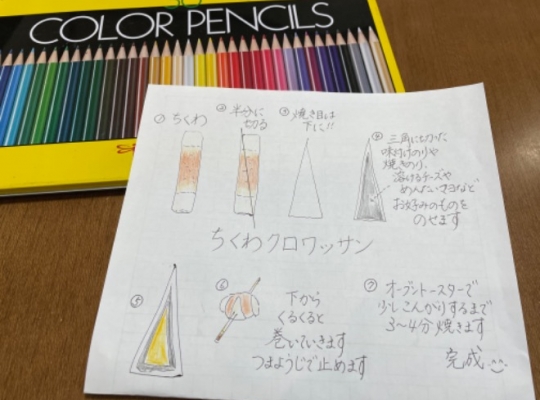 COLOR PENCILS
① ちくわ
② 半分に
切る
③ 焼き目は
下に!!
④ 三角に切った
味付けのりや
焼きのり、
溶けるチーズや
めんたいマヨなど
お好みのものを
のせます
ちくわクロワッサン
⑤
⑥ 下から
くるくると
巻いていきます
つまようじで止めます
⑦ オーブントースターで
少しこんがりするまで
3〜4分焼きます
完成